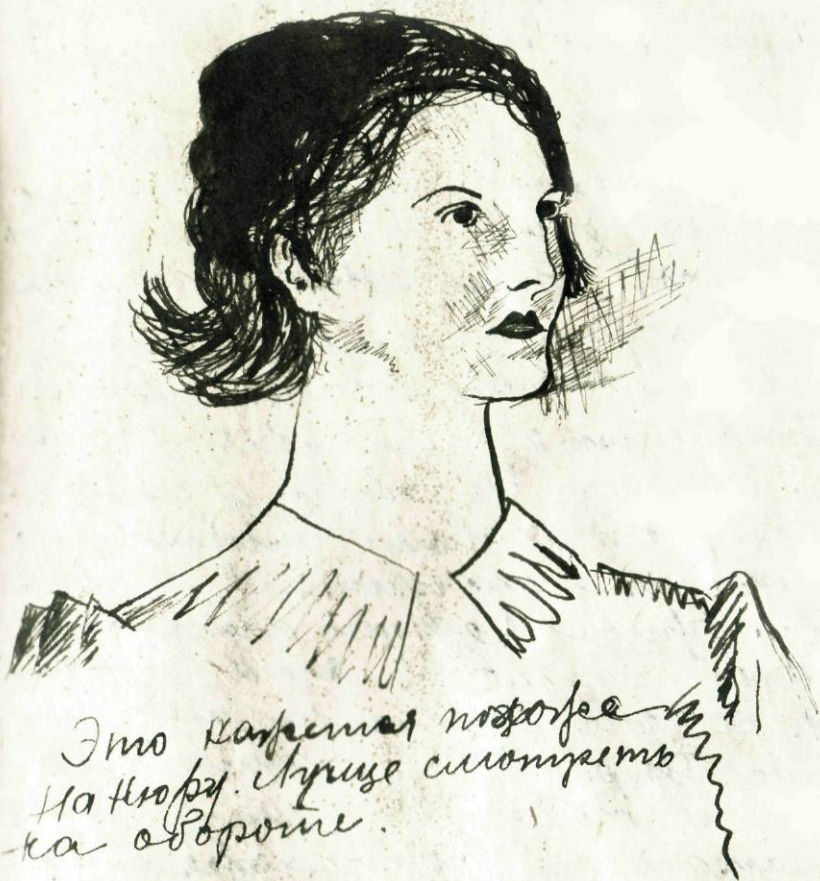 Это кажется похожа
на Нюру. Лучше смотреть
на обороте.